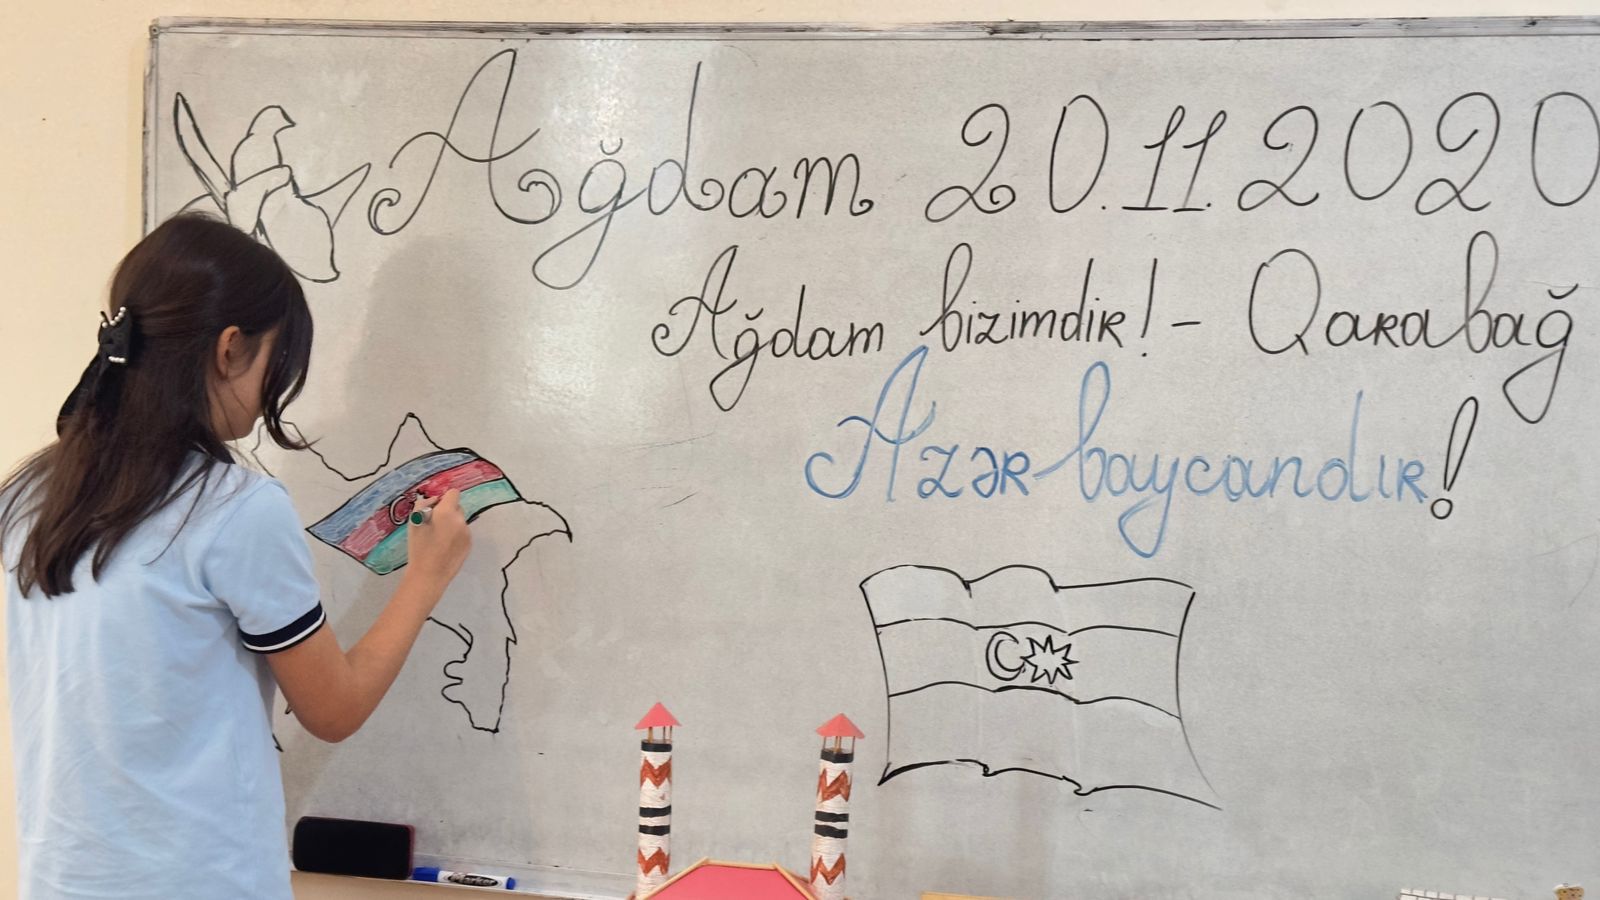 Ağdam 20.11.2020
Ağdam bizimdir! - Qarabağ
Azərbaycandır!
Marker